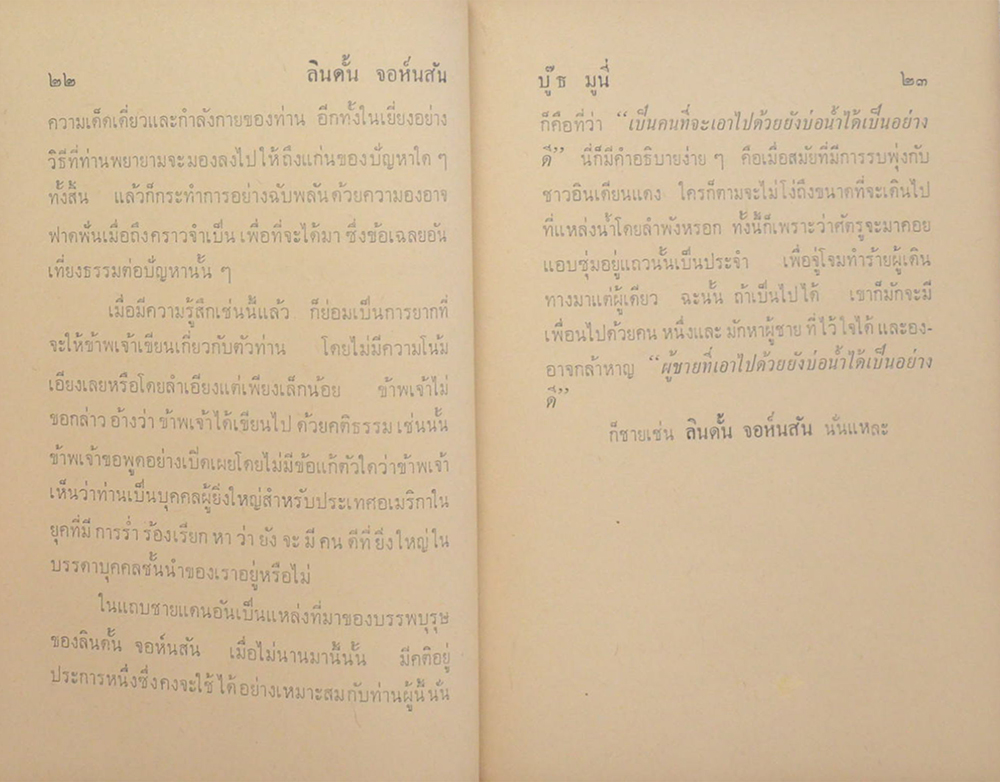 ๒๒ ลินดั้น จอห์นสัน
ความเด็ดเดี่ยวและกำลังกายของท่าน อีกทั้งในเยี่ยงอย่าง
วิธีที่ท่านพยายามจะมองลงไปให้ถึงแก่นของปัญหาใด ๆ
ทั้งสิ้น แล้วก็กระทำการอย่างฉับพลันด้วยความองอาจ
ฟาดฟันเมื่อถึงคราวจำเป็น เพื่อที่จะได้มา ซึ่งข้อเฉลยอัน
เที่ยงธรรมต่อปัญหานั้น ๆ
เมื่อมีความรู้สึกเช่นนี้แล้ว ก็ย่อมเป็นการยากที่
จะให้ข้าพเจ้าเขียนเกี่ยวกับตัวท่าน โดยไม่มีความโน้ม
เอียงเลยหรือโดยลำเอียงแต่เพียงเล็กน้อย ข้าพเจ้าไม่
ขอกล่าว อ้างว่า ข้าพเจ้าได้เขียนไป ด้วยคติธรรม เช่นนั้น
ข้าพเจ้าขอพูดอย่างเปิดเผยโดยไม่มีข้อแก้ตัวใดว่าข้าพเจ้า
เห็นว่าท่านเป็นบุคคลผู้ยิ่งใหญ่สำหรับประเทศอเมริกาใน
ยุคที่มี การร่ำ ร้องเรียก หา ว่า ยัง จะ มี คน ดีที่ ยิ่ง ใหญ่ ใน
บรรดาบุคคลชั้นนำของเราอยู่หรือไม่
ในแถบชายแดนอันเป็นแหล่งที่มาของบรรพบุรุษ
ของลินดั้น จอห์นสัน เมื่อไม่นานมานี้นั้น มีคติอยู่
ประการหนึ่งซึ่งคงจะใช้ ได้ อย่างเหมาะสม กับท่านผู้นี้ นั่น
บู๊ธ มูนี่ ๒๓
ก็คือที่ว่า “เป็นคนที่จะเอาไปด้วยยังบ่อน้ำได้เป็นอย่าง
ดี” นี่ก็มีคำอธิบายง่าย ๆ คือเมื่อสมัยที่มีการรบพุ่งกับ
ชาวอินเดียนแดง ใครก็ตามจะไม่โง่ถึงขนาดที่จะเดินไป
ที่แหล่งน้ำโดยลำพังหรอก ทั้งนี้ก็เพราะว่าศัตรูจะมาคอย
แอบซุ่มอยู่แถวนั้นเป็นประจำ เพื่อจู่โจมทำร้ายผู้เดิน
ทางมาแต่ผู้เดียว ฉะนั้น ถ้าเป็นไปได้ เขาก็มักจะมี
เพื่อนไปด้วยคน หนึ่งและ มักหาผู้ชาย ที่ ไว้ ใจได้ และอง-
อาจกล้าหาญ “ผู้ชายที่เอาไปด้วยยังบ่อน้ำได้เป็นอย่าง
ดี”
ก็ชายเช่น ลินดั้น จอห์นสัน นั่นแหละ